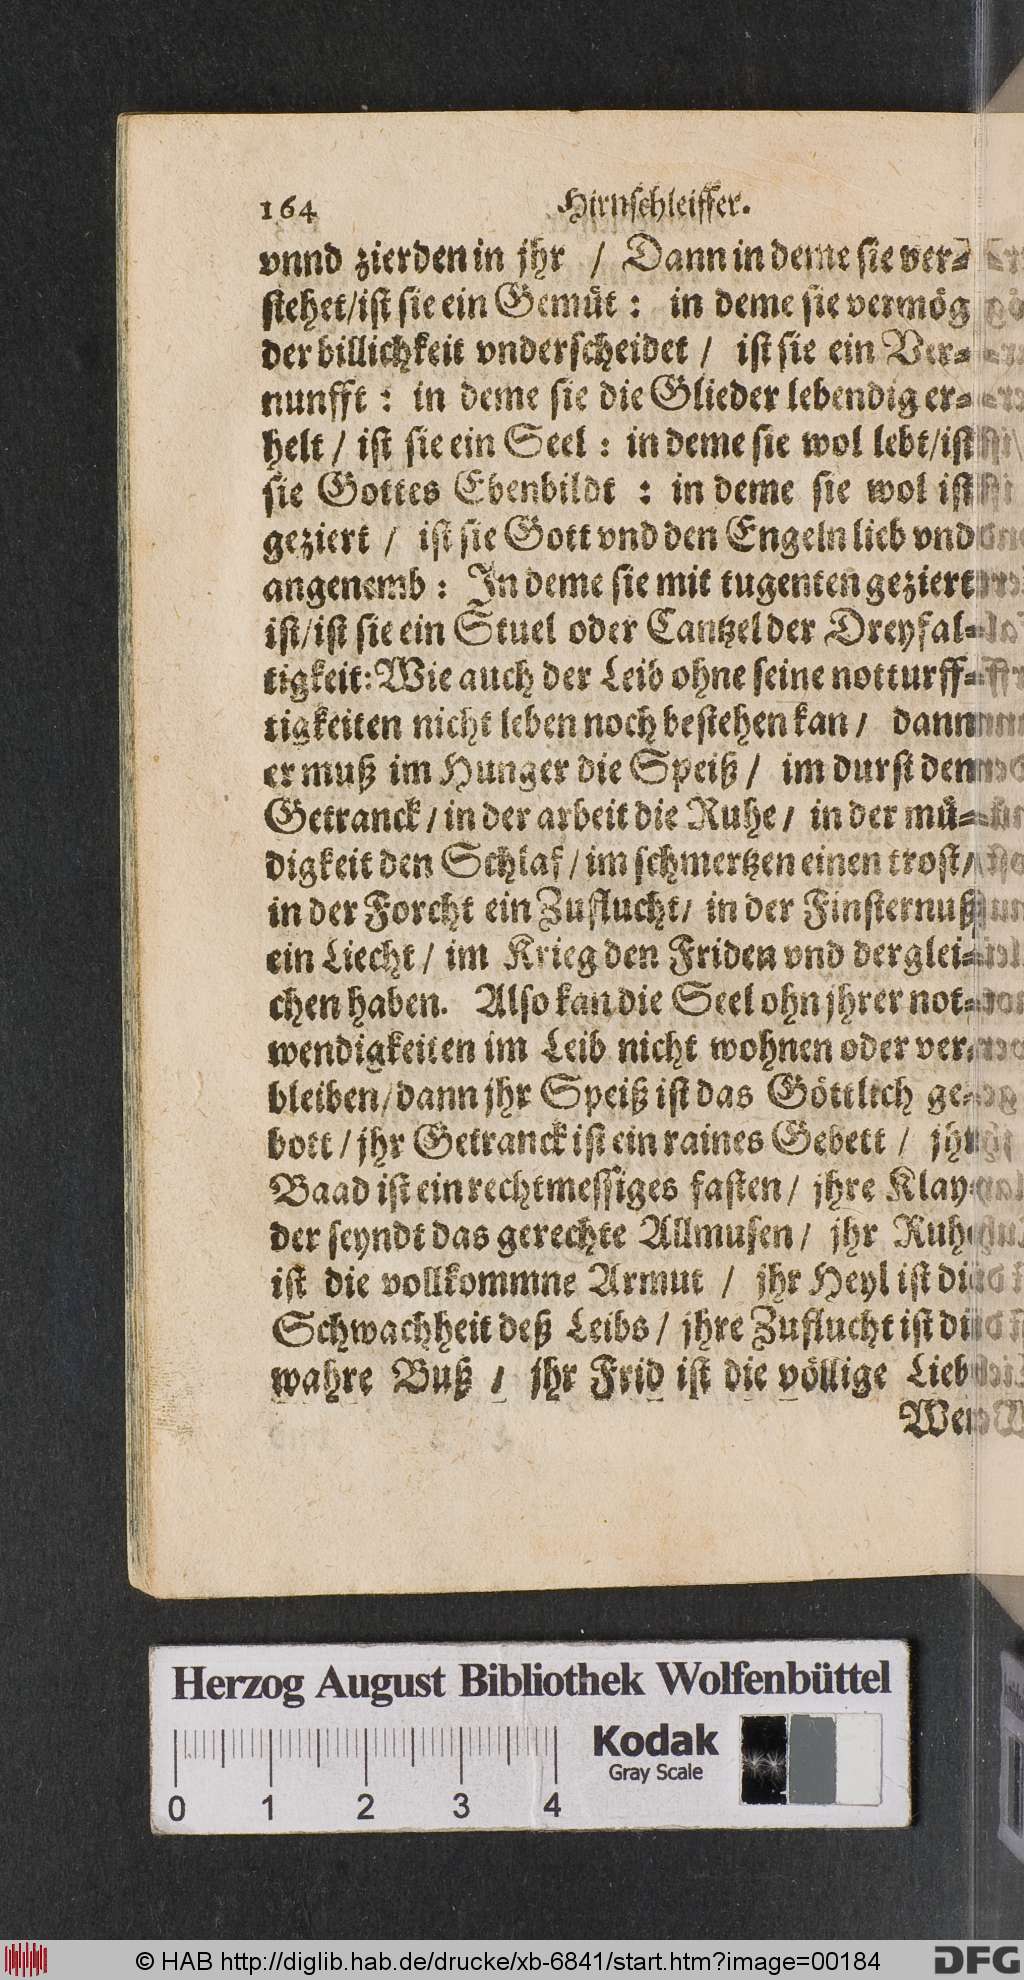 164 Hirnschleiffer.
vnnd zierden in jhr / Dann in deme sie ver-
stehet/ist sie ein Gemüt : in deme sie vermög
der billichkeit vnderscheidet / ist sie ein Ver-
nunfft : in deme sie die Glieder lebendig er-
helt / ist sie ein Seel : in deme sie wol lebt/ist
sie Gottes Ebenbildt : in deme sie wol ist
geziert / ist sie Gott vnd den Engeln lieb vnd
angenemb : In deme sie mit tugenten geziert
ist/ist sie ein Stuel oder Cantzel der Dreyfal-
tigkeit: Wie auch der Leib ohne seine notturff-
tigkeiten nicht leben noch bestehen kan / dann
er muß im Hunger die Speiß / im durst den
Getranck / in der arbeit die Ruhe / in der mü-
digkeit den Schlaf / im schmertzen einen trost /
in der Forcht ein Zuflucht / in der Finsternuß
ein Liecht / im Krieg den Friden vnd derglei-
chen haben. Also kan die Seel ohn jhrer not-
wendigkeiten im Leib nicht wohnen oder ver-
bleiben / dann jhr Speiß ist das Göttlich ge-
bott / jhr Getranck ist ein raines Gebett / jhr
Baad ist ein rechtmessiges fasten / jhre Klay-
der seyndt das gerechte Allmusen / jhr Ruh
ist die vollkommne Armut / jhr Heyl ist die
Schwachheit deß Leibs / jhre Zuflucht ist die
wahre Buß / jhr Frid ist die völlige Lieb
Herzog August Bibliothek Wolfenbüttel
Kodak
Gray Scale
0 1 2 3 4
© HAB http://diglib.hab.de/drucke/xb-6841/start.htm?image=00184 DFG